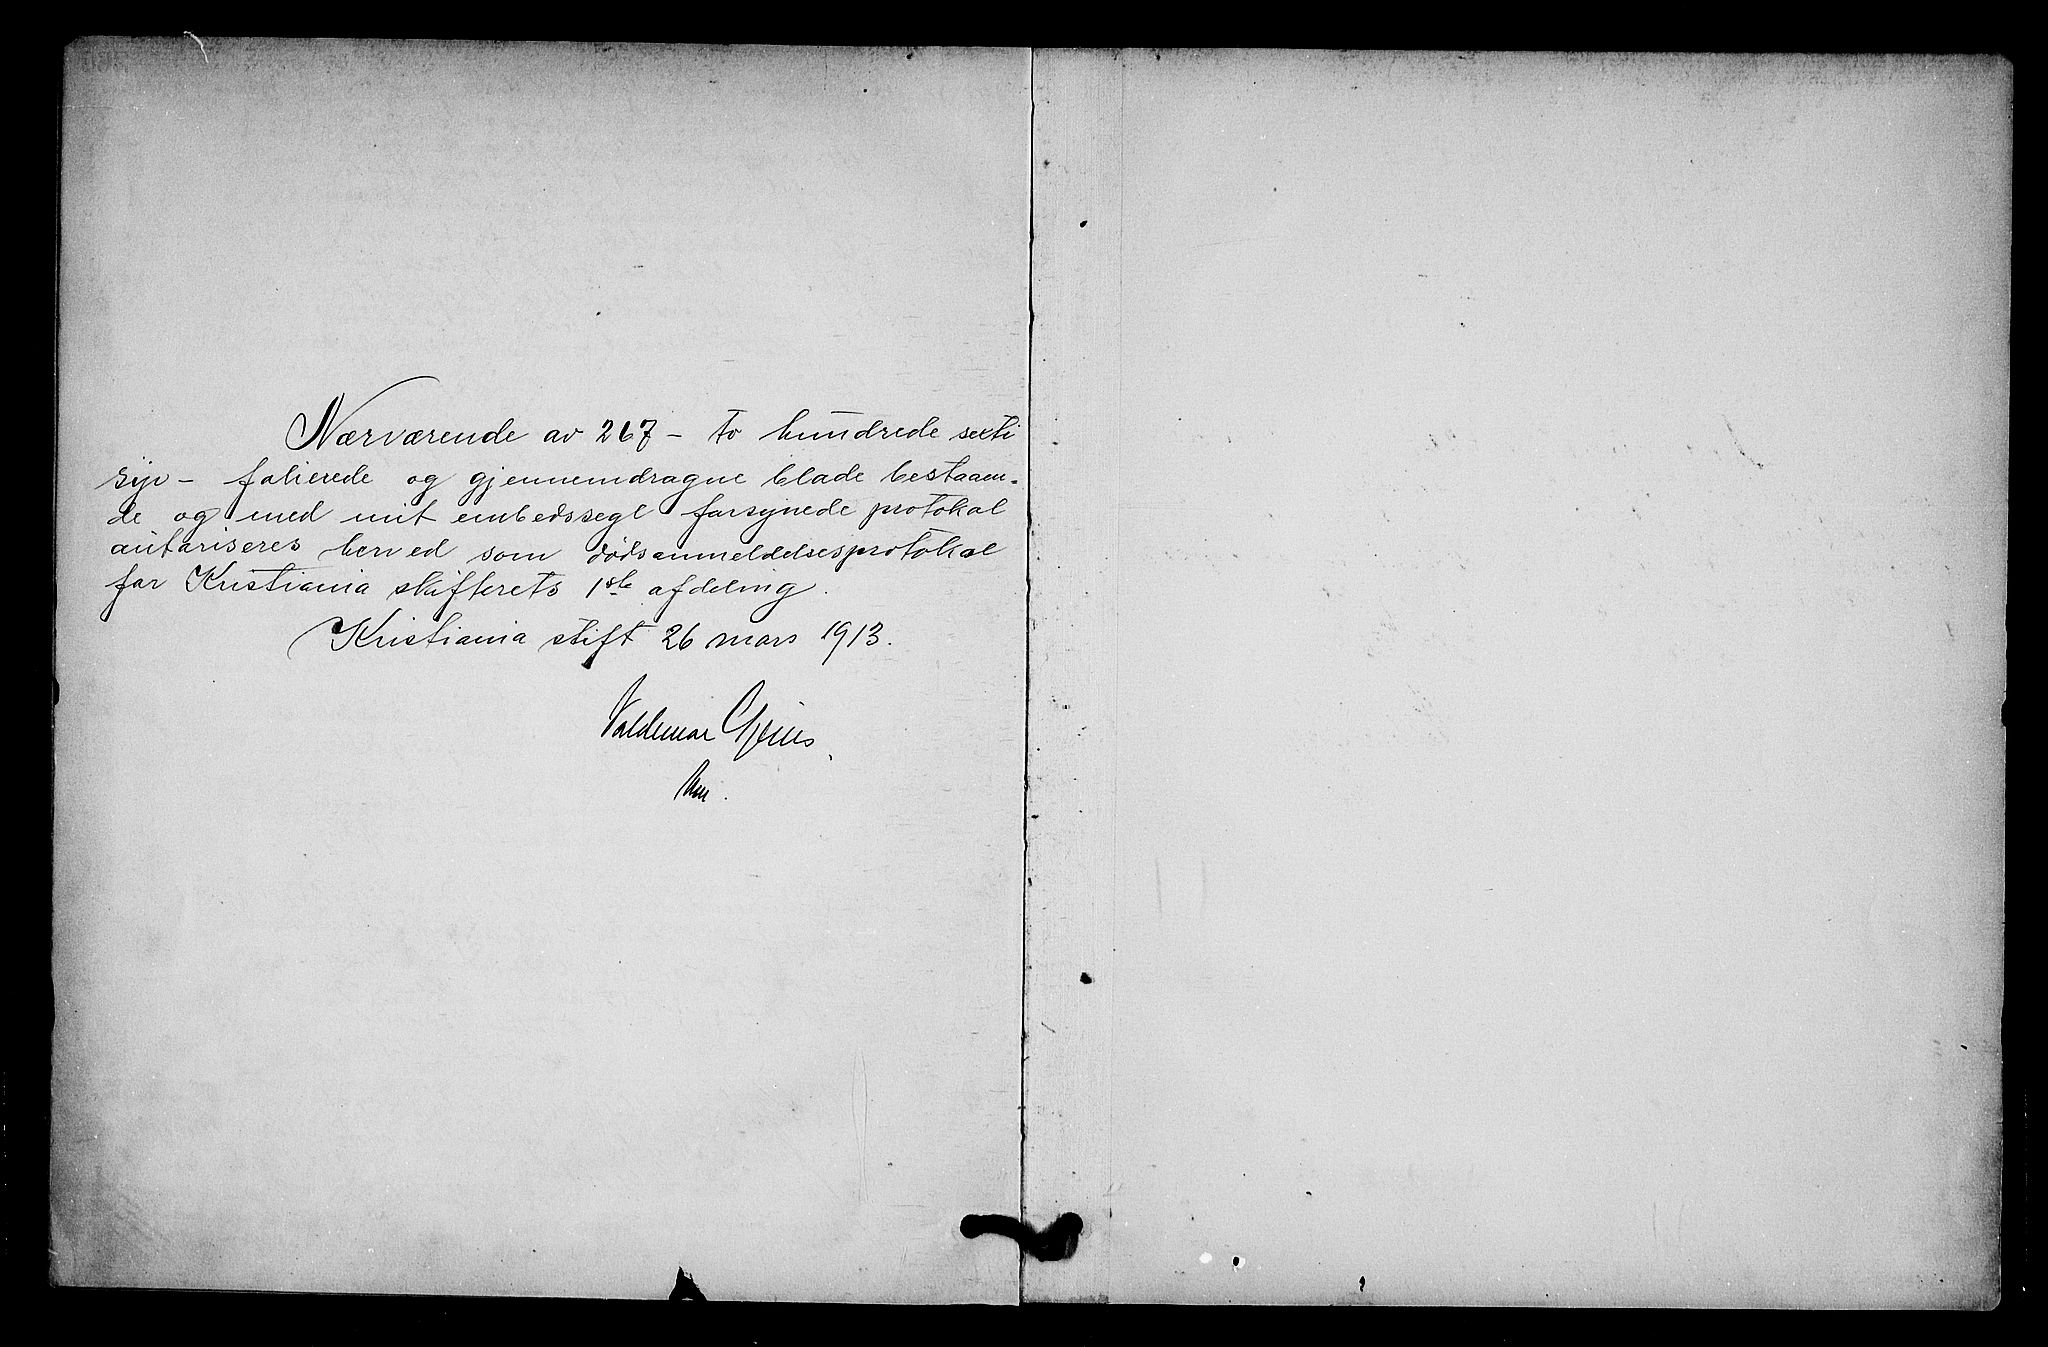 Nærværende av 267 – to hundrede sexti
syv – folierede og gjennemdragne blade bestaaen-
de og med mit embedssegl forsynede protokol
autoriseres herved som dødsanmeldelsesprotokol
for Kristiania skifterets 1ste afdeling.
Kristiania stift 26 mars 1913.
Valdemar